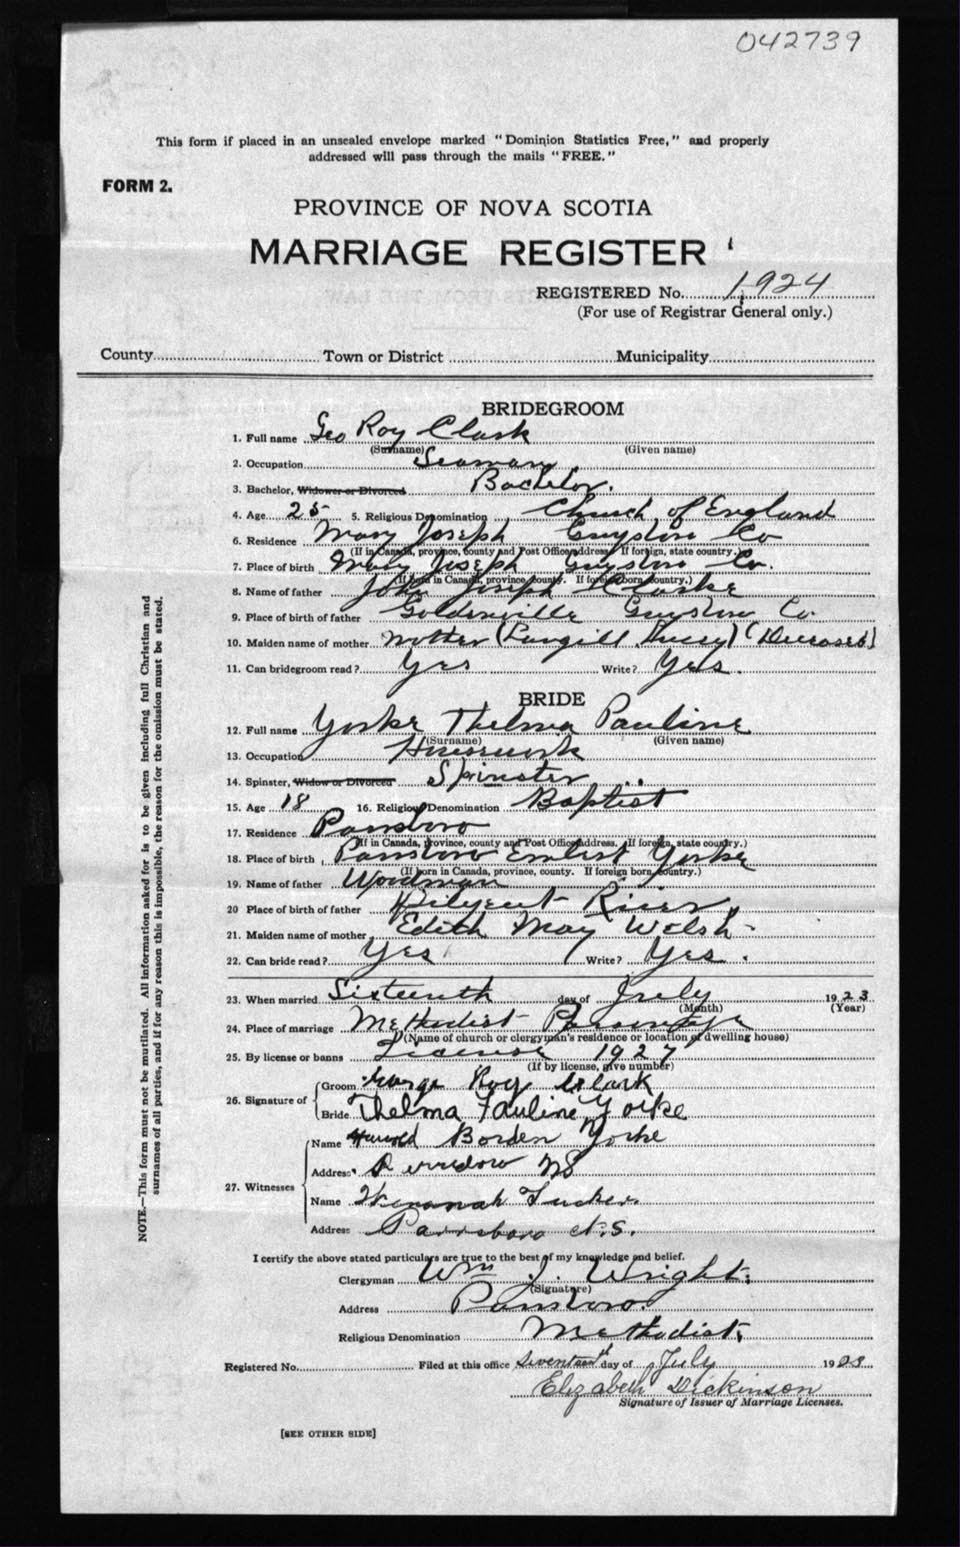 042739
This form if placed in an unsealed envelope marked "Dominion Statistics Free," and properly
addressed will pass through the mails "FREE."
FORM 2.
PROVINCE OF NOVA SCOTIA
MARRIAGE REGISTER
REGISTERED No. 1924
(For use of Registrar General only.)
County Town or District Municipality
BRIDEGROOM
1. Full name Geo Roy Clark
(Surname) (Given name)
2. Occupation Seaman
3. Bachelor, Widower or Divorced Bachelor.
4. Age 25 5. Religious Denomination Church of England
6. Residence Mary Joseph Guysboro Co
(If in Canada, province, county and Post Office address. If foreign, state country.)
7. Place of birth Mary Joseph Guysboro Co.
(If born in Canada, province, county. If foreign born, country.)
8. Name of father John Joseph Clarke
9. Place of birth of father Goldenville Guysboro Co
10. Maiden name of mother mother (Langill (Deceased)
11. Can bridegroom read? Yes Write? Yes.
BRIDE
12. Full name Yorke Thelma Pauline
(Surname) (Given name)
13. Occupation Housework
14. Spinster, Widow or Divorced Spinster
15. Age 18 16. Religious Denomination Baptist
17. Residence Parrsboro
(If in Canada, province, county and Post Office address. If foreign, state country.)
18. Place of birth Parrsboro Yorke
(If born in Canada, province, county. If foreign born, country.)
19. Name of father Woodman
20 Place of birth of father River
21. Maiden name of mother Edith May Welsh
22. Can bride read? Yes Write? Yes.
23. When married Sixteenth day of July 1923
(Month) (Year)
24. Place of marriage Methodist Parsonage
(Name of church or clergyman's residence or location of dwelling house)
25. By license or banns License 1927
(If by license, give number)
26. Signature of
Groom George Roy Clark
Bride Thelma Pauline Yorke
27. Witnesses
Name Harold Borden Yorke
Address NS
Name Tucker
Address Parrsboro N.S.
I certify the above stated particulars are true to the best of my knowledge and belief.
Clergyman Wm J. Wright.
(Signature)
Address Parrsboro.
Religious Denomination Methodist.
Registered No. Filed at this office Seventeenth day of July 1923
Elizabeth Dickinson
Signature of Issuer of Marriage Licenses.
[SEE OTHER SIDE]
NOTE.—This form must not be mutilated. All information asked for is to be given including full Christian and
surnames of all parties, and if for any reason this is impossible, the reason for the omission must be stated.